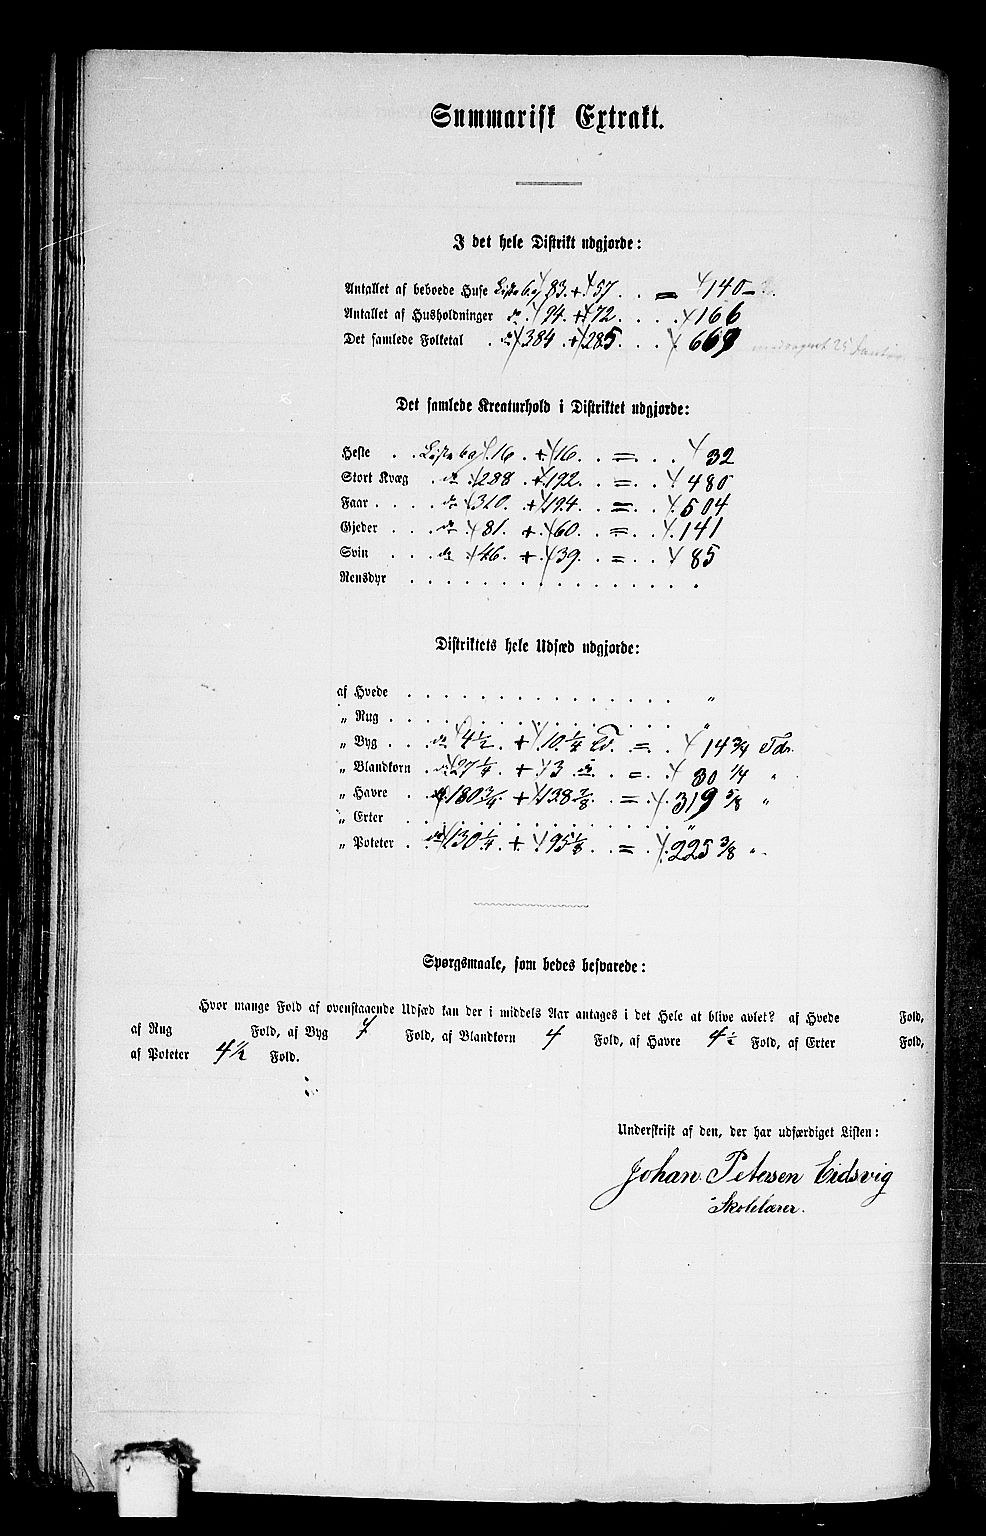 Summarisk Extrakt.
I det hele Distrikt udgjorde:
Antallet af beboede Huse Liste 6 a/ 83. + 57 . . = 140
Antallet af Husholdninger do . 94. + 72 . . . . 166
Det samlede Folketal . do 384 . + 285 . . . 669 25
Det samlede Kreaturhold i Distriktet udgjorde:
Heste . . Liste 6 a/ 16 . + 16 . . = . . . 32
Stort Kvæg . do . 288 . + 192 . . = . . 480
Faar . . . . do . 310 . . + 194 . . = . . 504
Gjeder . . . do . 81 . + 60 . . = . . 141
Svin . . . . do . 46 . + . 39 . . = . . 85
Rensdyr . . . . . . . . . . . . . . . . „
Distriktets hele Udsæd udgjorde:
af Hvede . . . . . . . . . . . . . . . „
„ Rug . . . . . . . . . . . . . . . . „
„ Byg . . . do 4 1/2 . + 10 1/4 Td. . = . 14 3/4 Tdr.
„ Blandkorn . do 27 1/4 + 3 do . . = . . 30 1/4 „
„ Havre . . do 180 3/4 + 138 7/8 . . = . . 319 5/8 „
„ Erter . . . . . . . . . . . . . . . „
„ Poteter . . do 130 1/4 . + . 95 1/8 . . = . . 225 3/8 „
Spørgsmaale, som bedes besvarede:
Hvor mange Fold af ovenstaaende Udsæd kan der i middels Aar antages i det Hele at blive avlet? af Hvede Fold,
af Rug Fold, af Byg 7 Fold, af Blandkorn 4 Fold, af Havre 4 1/2 Fold, af Erter Fold,
af Poteter 4 1/2 Fold.
Underskrift af den, der har udfærdiget Listen:
Johan Petersen Eidsvig
Skolelærer.